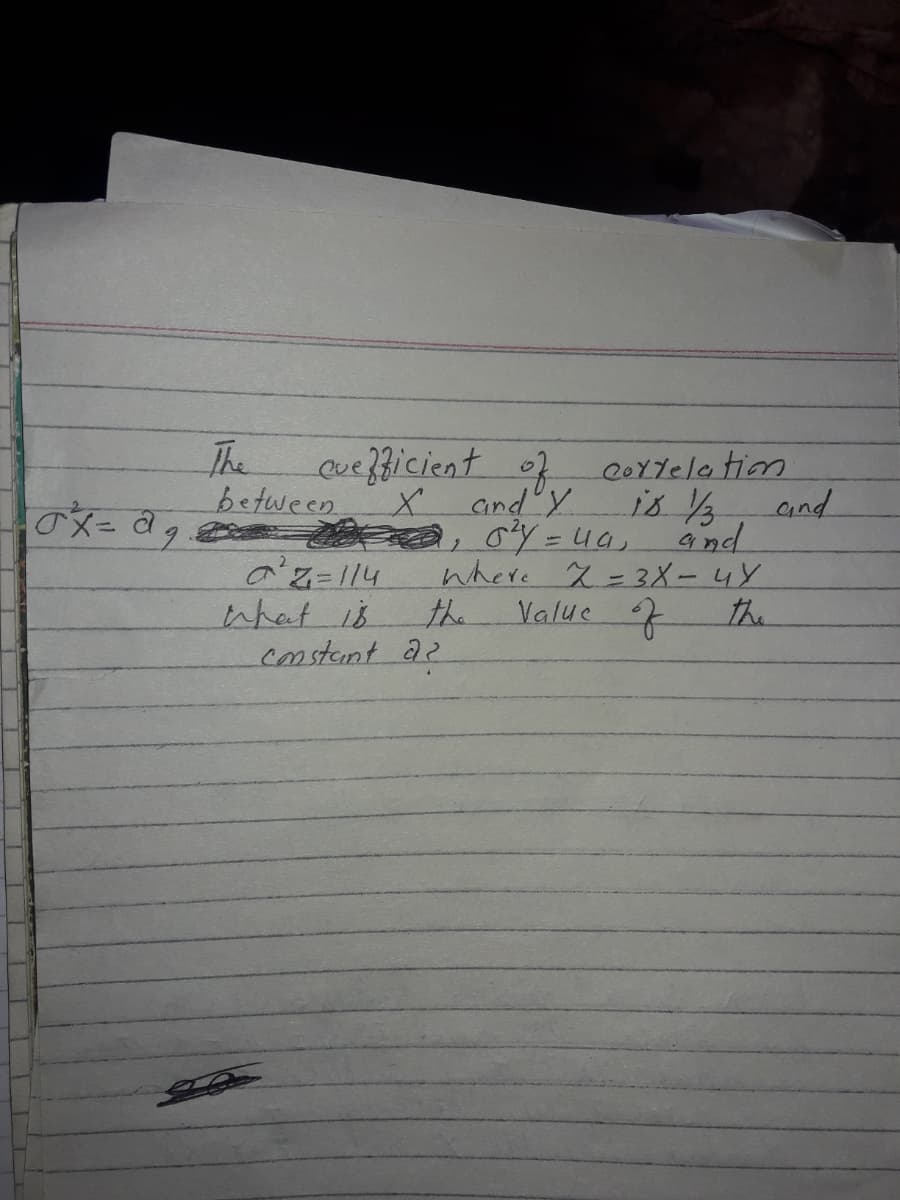 The coefficient of correlation
between X and Y is 1/3 and
σ²X = a, , σ²Y = 4a, and
σ²Z = 114 where Z = 3X - 4Y
what is the Value of the
constant a?